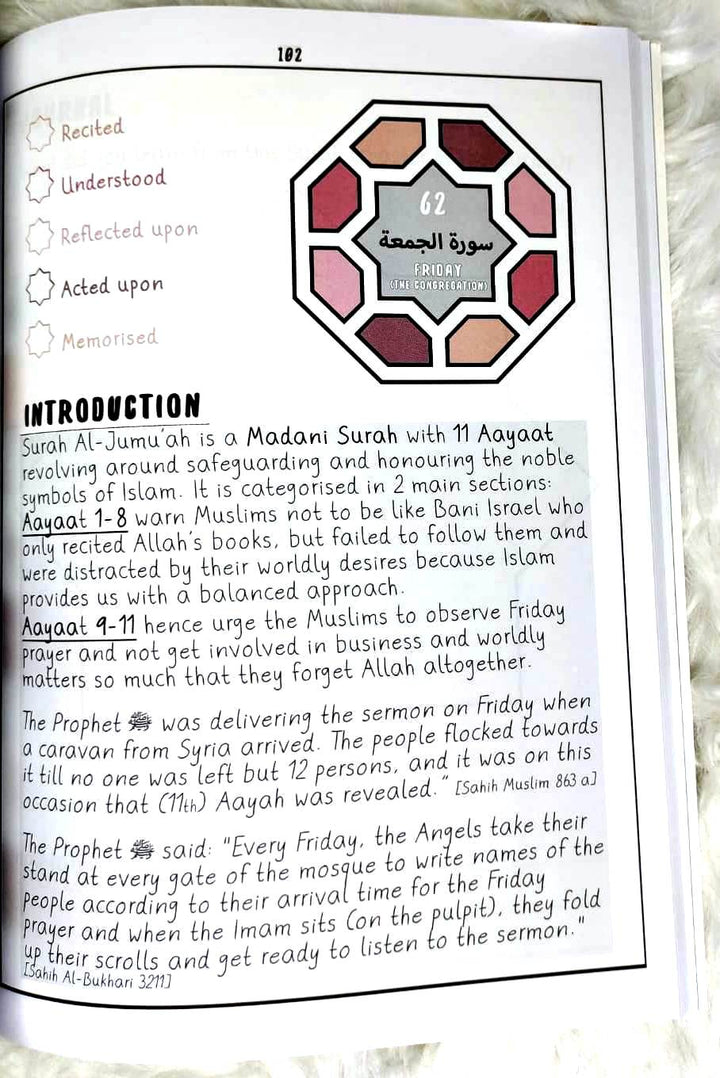 102
Recited
Understood
Reflected upon
Acted upon
Memorised
62
سورة الجمعة
FRIDAY
(THE CONGREGATION)
INTRODUCTION
Surah Al-Jumu'ah is a Madani Surah with 11 Aayaat
revolving around safeguarding and honouring the noble
symbols of Islam. It is categorised in 2 main sections:
Aayaat 1-8 warn Muslims not to be like Bani Israel who
only recited Allah's books, but failed to follow them and
were distracted by their worldly desires because Islam
provides us with a balanced approach.
Aayaat 9-11 hence urge the Muslims to observe Friday
prayer and not get involved in business and worldly
matters so much that they forget Allah altogether.
The Prophet ﷺ was delivering the sermon on Friday when
a caravan from Syria arrived. The people flocked towards
it till no one was left but 12 persons, and it was on this
occasion that (11th) Aayah was revealed." [Sahih Muslim 863 a]
The Prophet ﷺ said: "Every Friday, the Angels take their
stand at every gate of the mosque to write names of the
people according to their arrival time for the Friday
prayer and when the Imam sits (on the pulpit), they fold
up their scrolls and get ready to listen to the sermon."
[Sahih Al-Bukhari 3211]